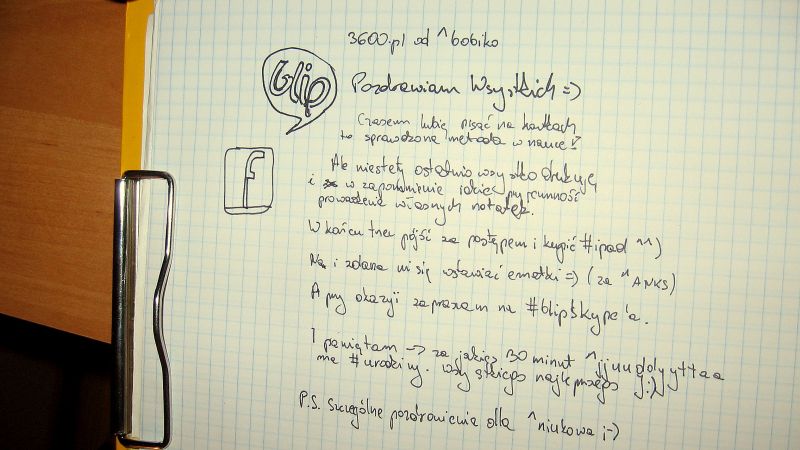 3600.pl od ^bobiko
blip
Pozdrawiam Wszystkich =)
Czasem lubię pisać na kartkach
to sprawdzona metoda w nauce!
f
Ale niestety ostatnio wszystko drukuję
i w zapomnienie idzie przyjemność
prowadzenia własnych notatek.
W końcu trza pójść za postępem i kupić #ipad ^^)
No i zdarza mi się wstawiać emotki =) (za ^ANKS)
A przy okazji zapraszam na #blipSkype'a.
I pamiętam -> za jakieś 30 minut ^jjuudolyyttaa
ma #urodziny. Wszystkiego najlepszego
P.S. Szczególne pozdrowienia dla ^niukowa ;-)